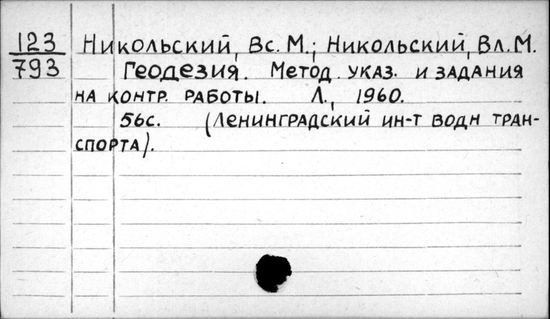 123 Никольский, Вс. М.; Никольский, Вл. М.
793 Геодезия. Метод. указ. и задания
на контр. работы. Л., 1960.
56с. (Ленинградский ин-т водн тран-
спорта).